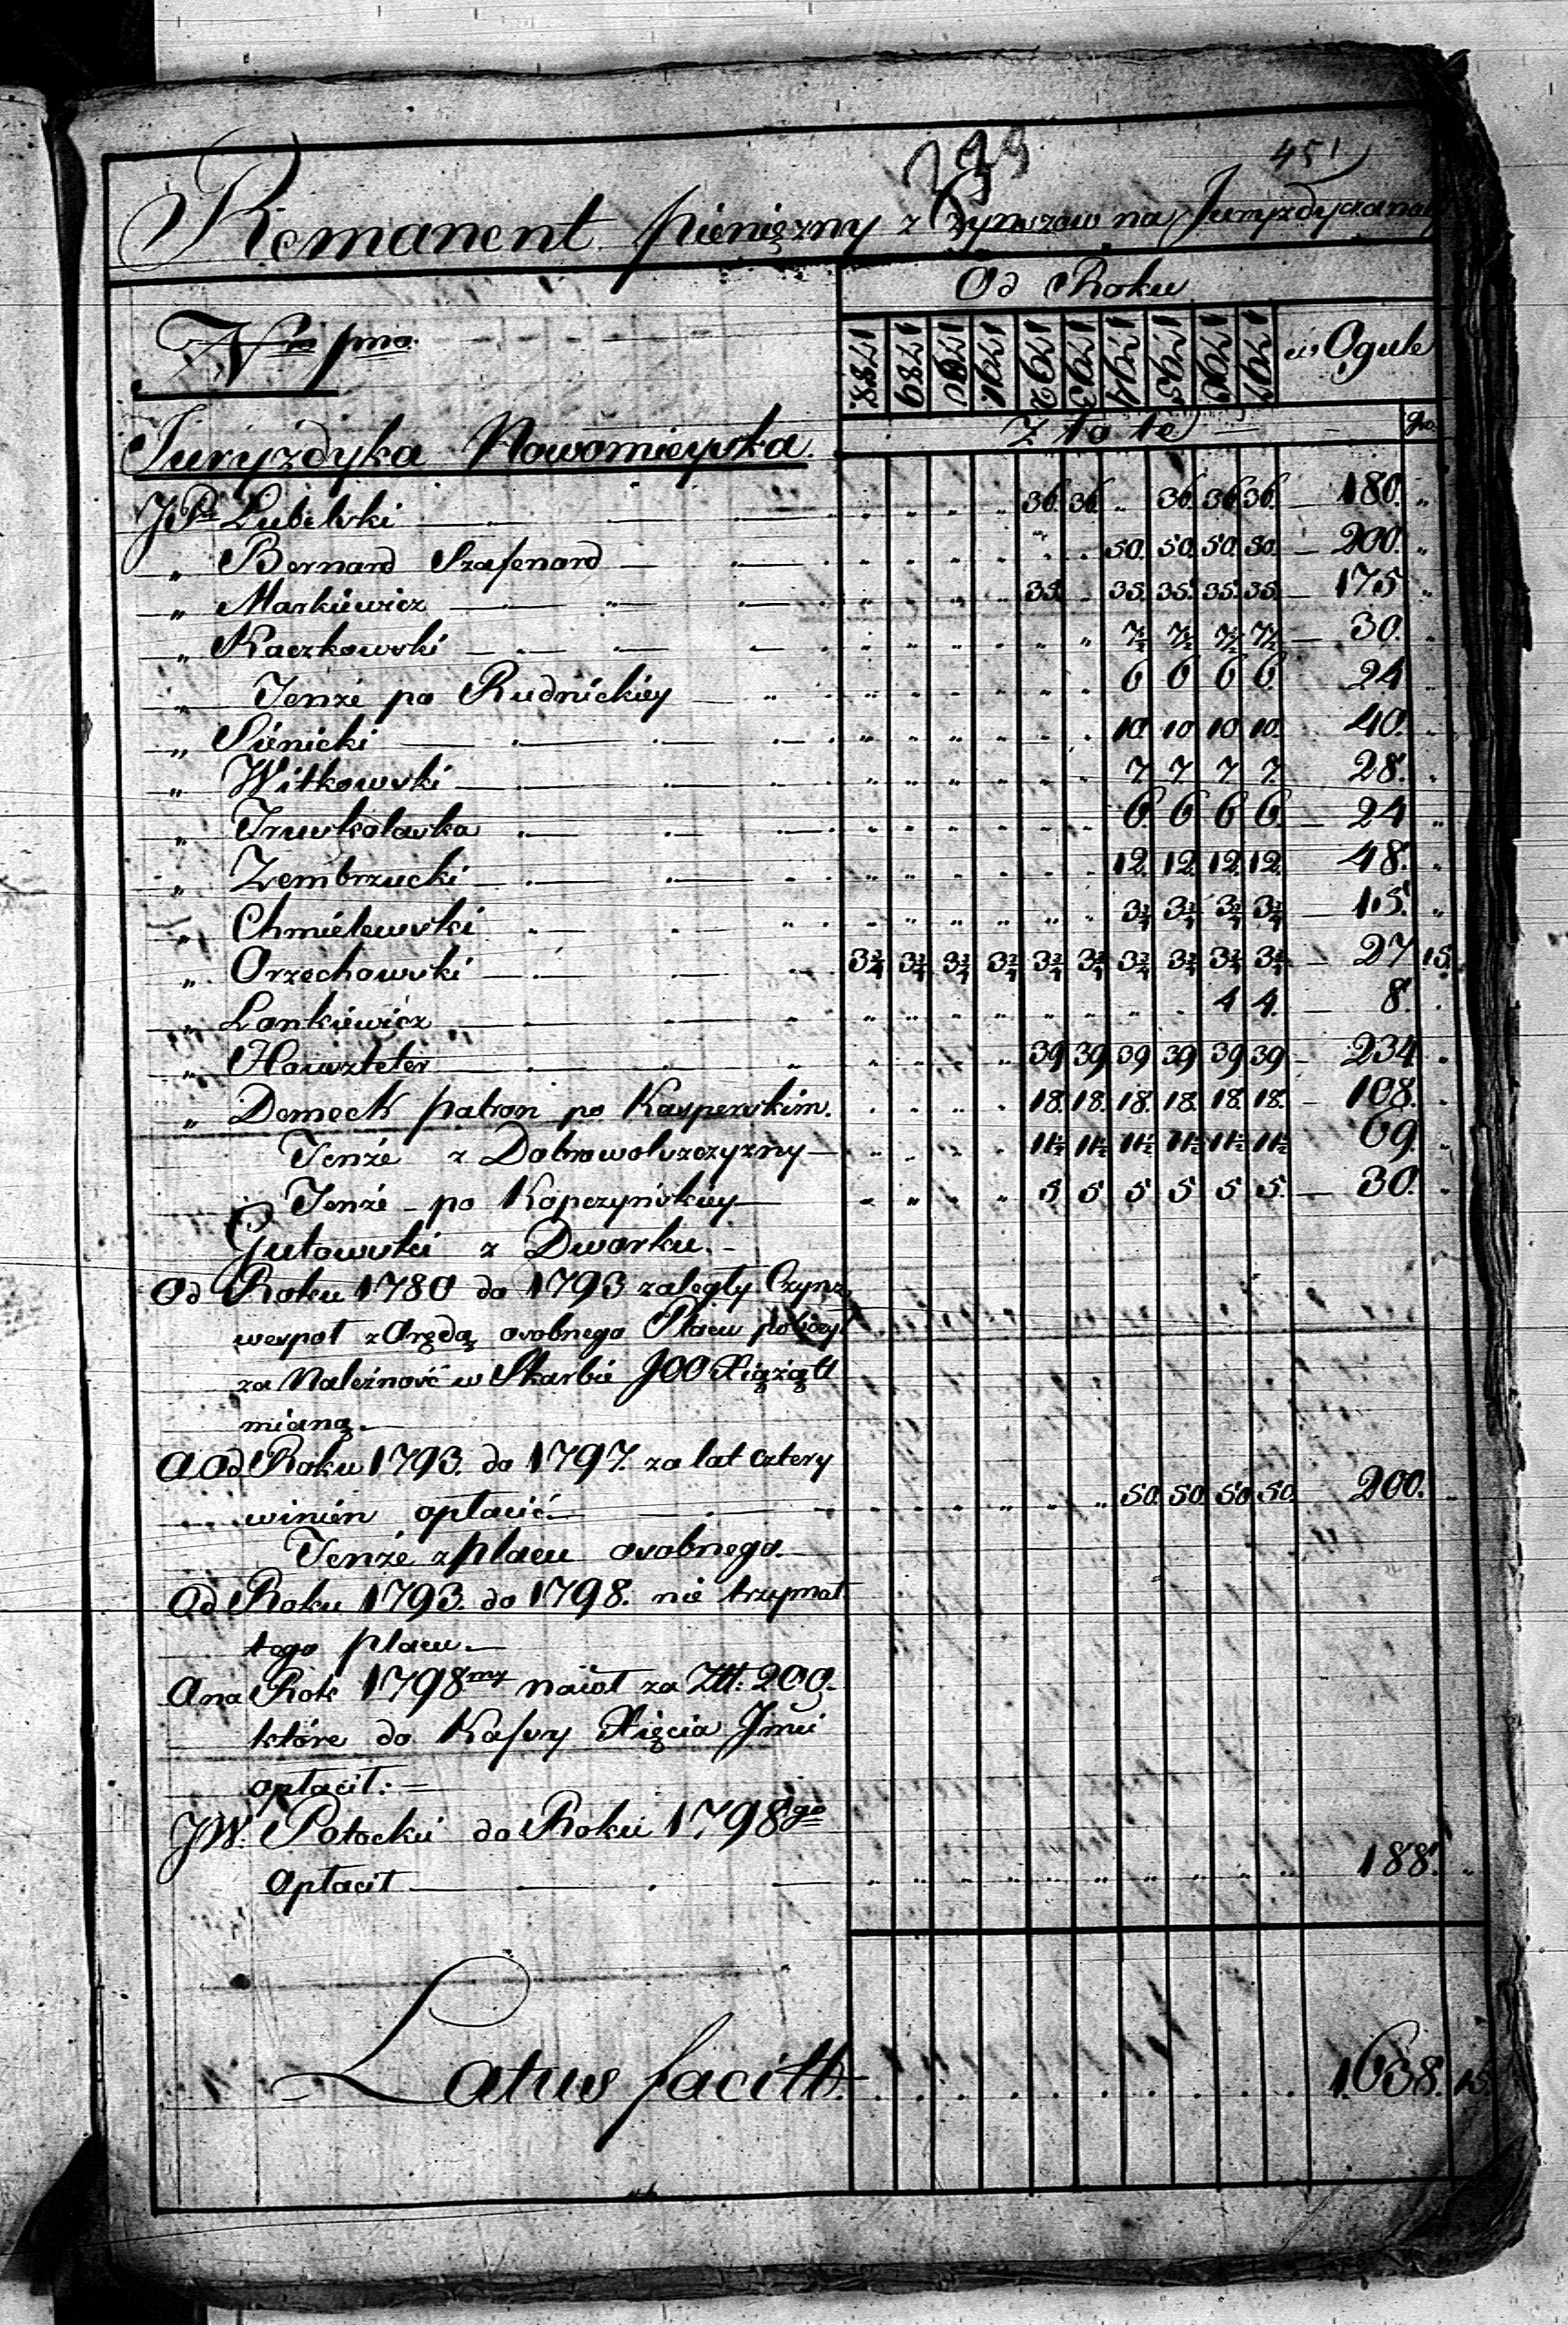 451
Remanent pieniężny z Czynszow na Juryzdyczanach
Od Roku
Nro pmo.
1788. 1789 1790 1791. 1792 1793 1794 1795 1796 1797 w Ogule
Złote gro.
Juryzdyka Nowomieyska
JPn Lubelski — „ „ „ „ 36. 36. „ 36. 36. 36. — 180. „
„ Bernard Szafenard — „ „ „ „ „ „ 50. 50. 50. 50. — 200. „
„ Markiewicz — „ „ „ „ 35. „ 35. 35. 35. 35. — 175 „
„ Kaczkowski — „ „ „ „ „ „ 7½ 7½ 7½ 7½ — 30. „
„ Tenże po Rudnickiey — „ „ „ „ „ „ 6 6 6 6. 24 „
„ Sienicki — „ „ „ „ „ „ 10. 10 10 10. 40. „
„ Witkowski — „ „ „ „ „ „ 7 7 7 7. 28. „
„ — „ „ „ „ „ „ 6. 6 6 6. — 24 „
„ Zembrzucki — „ „ „ „ „ „ 12. 12. 12. 12. 48. „
„ Chmielewski „ „ „ „ „ „ 3¾ 3¾ 3¾ 3¾ — 15. „
„ Orzechowski — 3¾ 3¾ 3¾ 3¾ 3¾ 3¾ 3¾ 3¾ 3¾ 3¾ — 27 15.
„ Lankiewicz — „ „ „ „ „ „ „ „ 4 4. — 8. „
„ Hawzteter — „ „ „ „ 39 39 39 39 39 39 — 234 „
„ Domeck patron po Kasperskim. „ „ „ „ 18. 18. 18. 18. 18. 18. — 108. „
Tenże z Dobrowolszczyzny — „ „ „ „ 11½ 11½ 11½ 11½ 11½ 11½ 69. „
Tenże – po Kopczyńskiey — „ „ „ „ 5 5 5 5 5 5. — 30. „
Gutowski z Dworku. –
Od Roku 1780 do 1793 zaległy Czynsz
wespoł z Arędą osobnego Placu
za Należność w Skarbie JOO Xiążąt
mianą. —
A Od Roku 1793. do 1797. za lat cztery
winien opłacić — „ „ „ „ „ „ 50. 50. 50. 50. 200. „
Tenże z placu osobnego. —
Od Roku 1793. do 1798. nie trzymał
tego placu. —
A na Rok 1798my naiął za Złł: 200.
które do Kassy Xięcia Jmci
opłacił: =
JW. Potocki do Roku 1798go
Opłacił — „ „ „ „ „ „ „ „ „ „ 188. „
Latus facitt. 1638. 15.